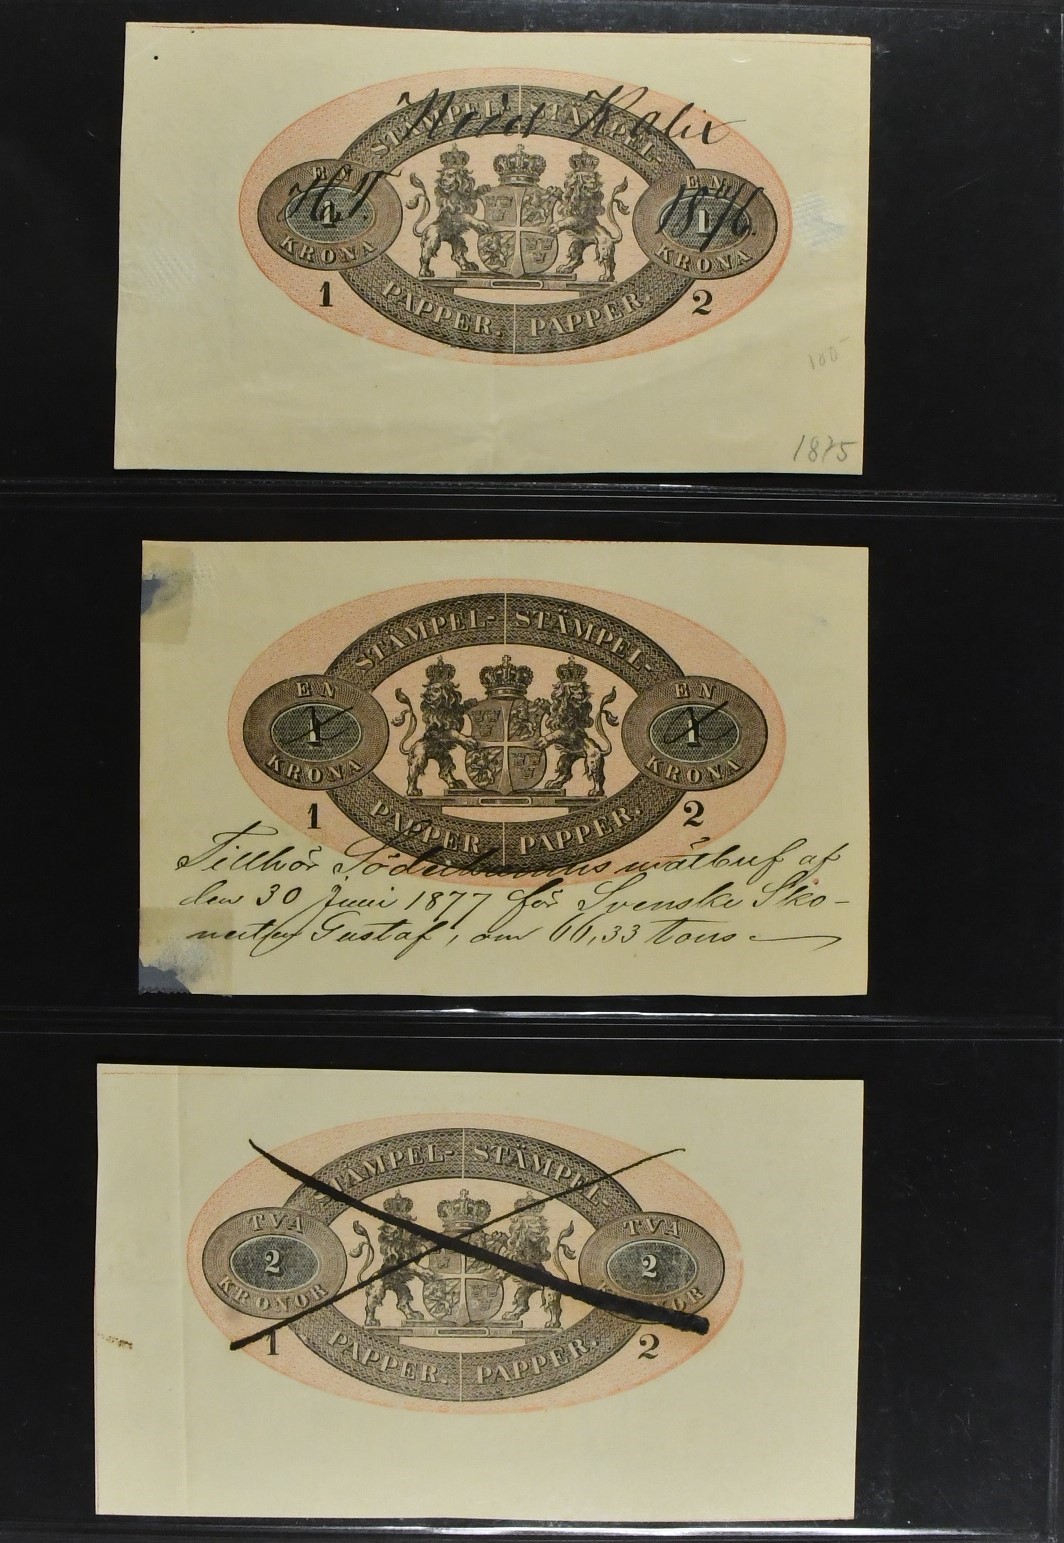 STÄMPEL- STÄMPEL-
Kalix
EN EN
1 1
1876.
KRONA KRONA
1 2
PAPPER. PAPPER.
100-
1875
STÄMPEL- STÄMPEL-
EN EN
1 1
KRONA KRONA
1 2
PAPPER PAPPER.
Tillhör mätbref af
den 30 Juni 1877 för Svenska Sko-
nerten Gustaf, om 66,33 tons
STÄMPEL- STÄMPEL-
TVÅ TVÅ
2 2
KRONOR KRONOR
1 2
PAPPER. PAPPER.